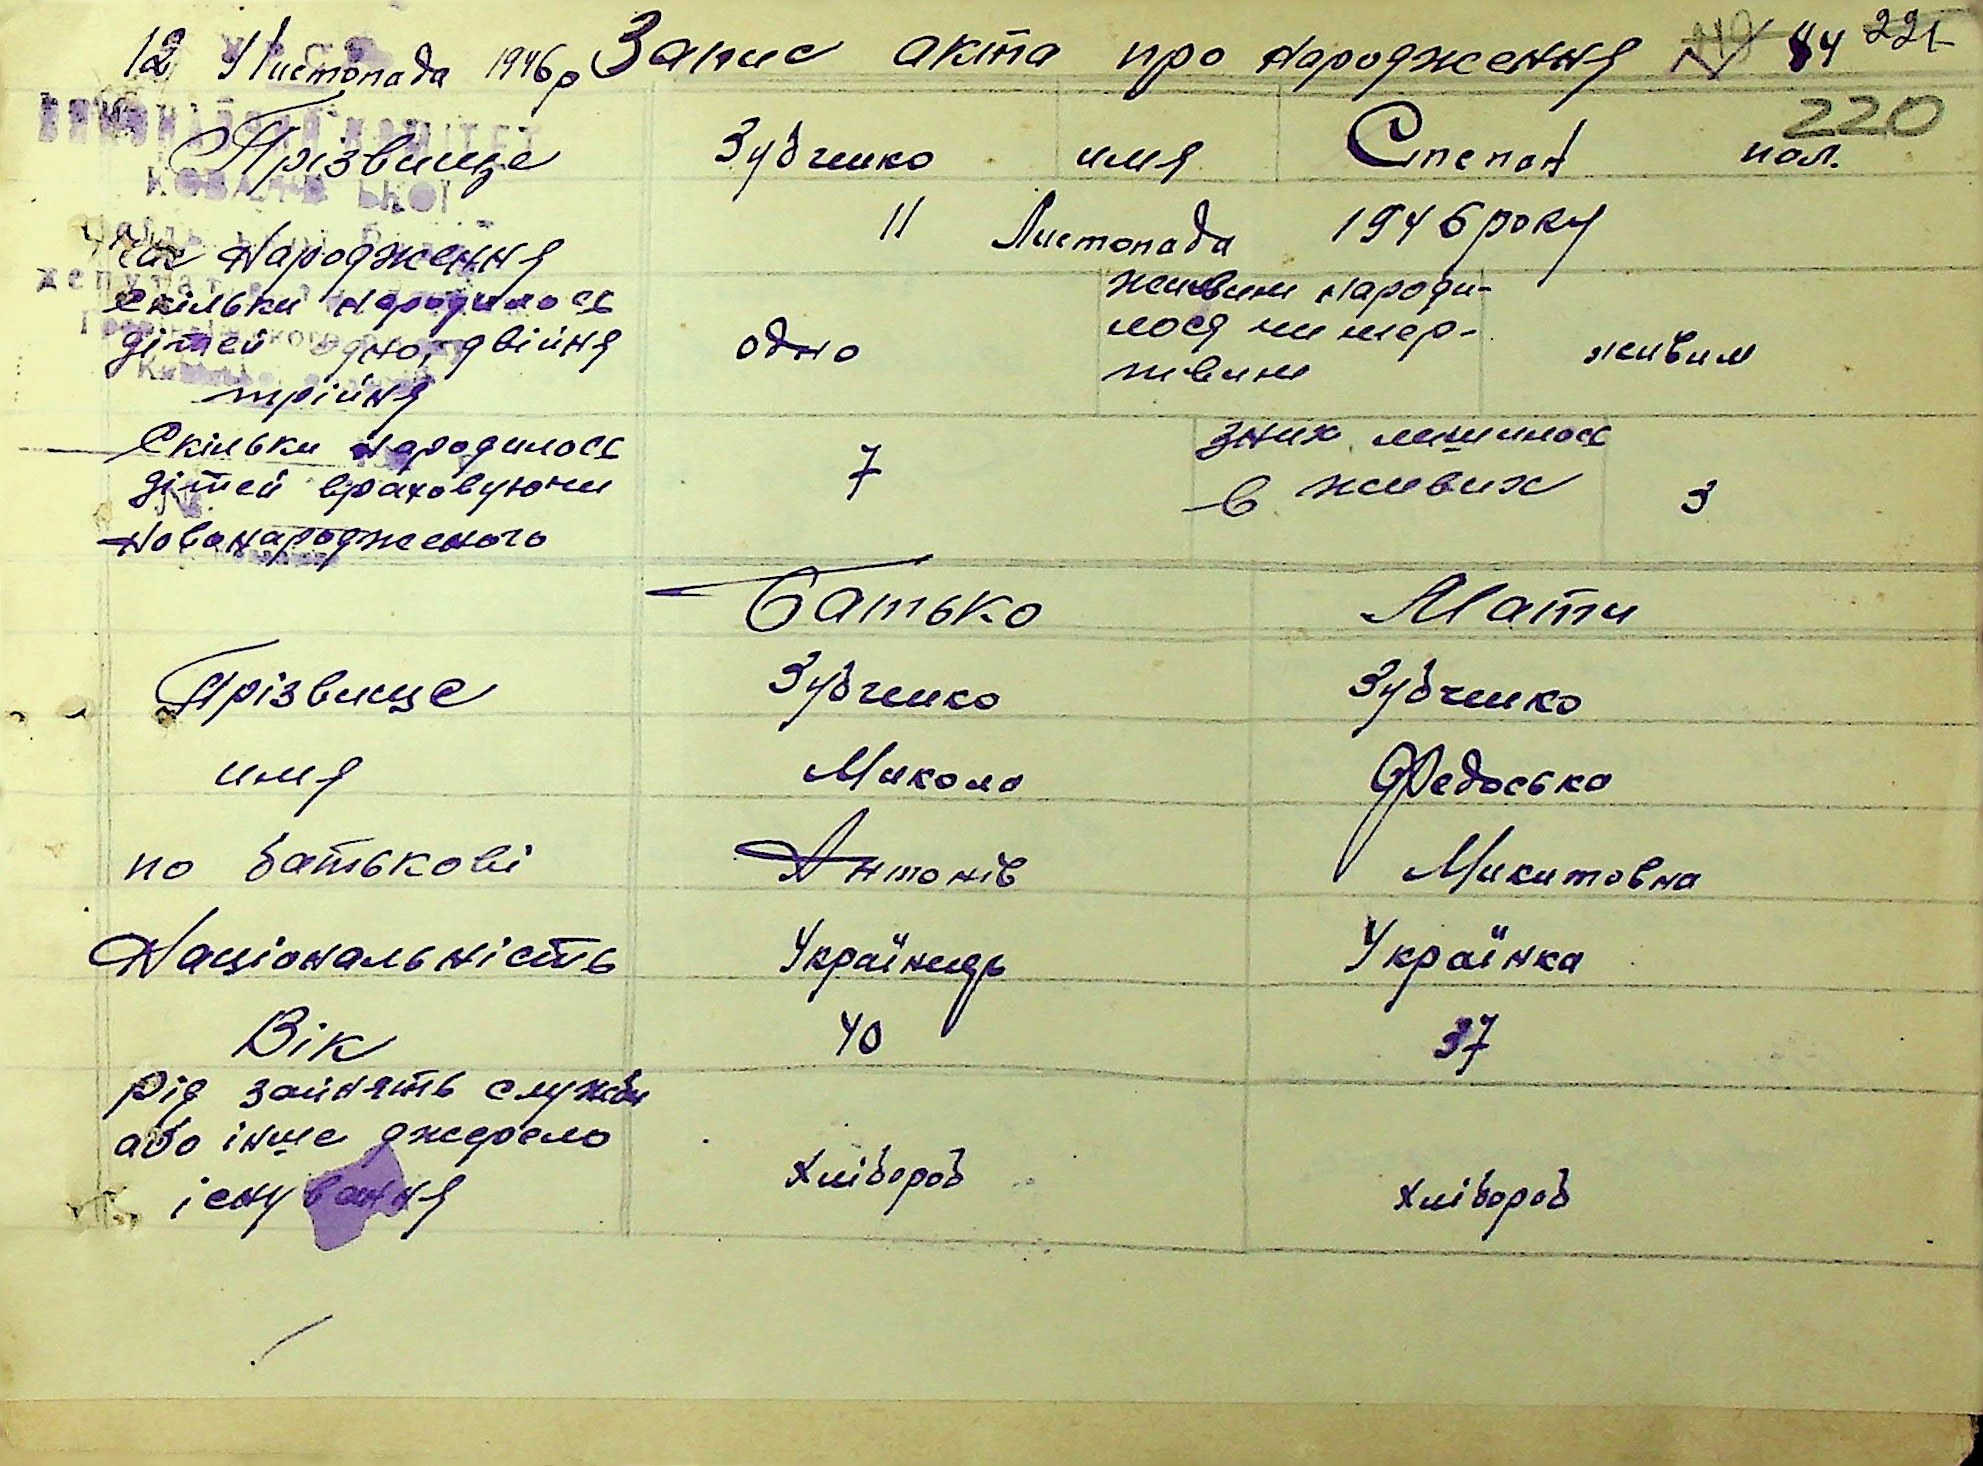 12 Листопада 1946 р Запис акта про народження № 44 221
220
Прізвище Зубченко имя Степан пол.
Час Народження 11 Листопада 1946 року
Скільки народилось дітей одно, двійня трійня одно живими народи-лося чи мер-твими живим
Скільки народилось дітей враховуючи новонародженого 7 зних лишилось в живих 3
Батько Мати
Прізвище Зубченко Зубченко
имя Микола Федоська
по батькові Антонів Микитовна
Національність Українець Українка
Вік 40 37
рід зайнять служби або інше джерело існування хлібороб хлібороб